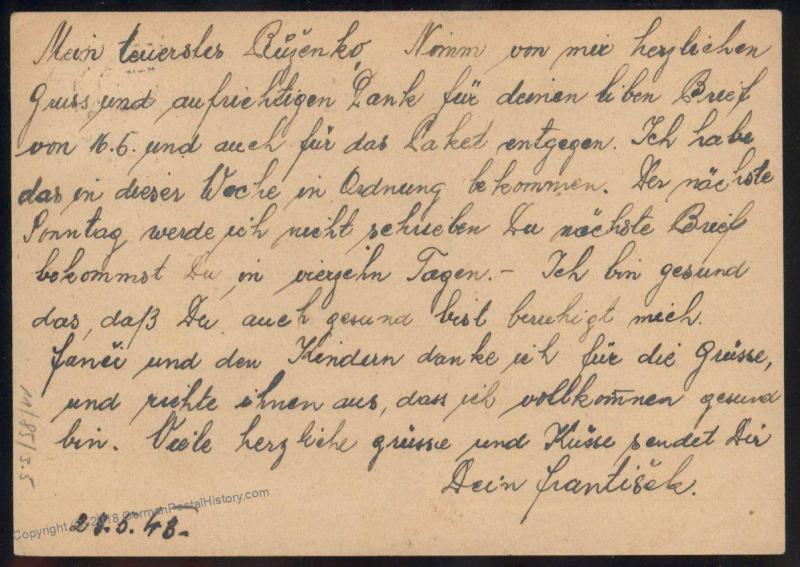 Mein teuerstes Růženko, Nimm von mir herzlichen
Gruss und aufrichtigen Dank für deinen liben Brief
von 16.5. und auch für das Paket entgegen. Ich habe
das in dieser Woche in Ordnung bekommen. Der nächste
Sonntag werde ich nicht schrieben Du nächste Brief
bekommst Du, in vierzehn Tagen. - Ich bin gesund
das, daß Du auch gesund bist beruhigt mich.
Fanči und den Kindern danke ich für die Grüsse,
und richte ihnen aus, dass ich vollkom̅nen gesund
bin. Viele herzliche grüsse und Küsse sendet Dir
Dein František.
5.43.-
Copyright 2018 GermanPostalHistory.com